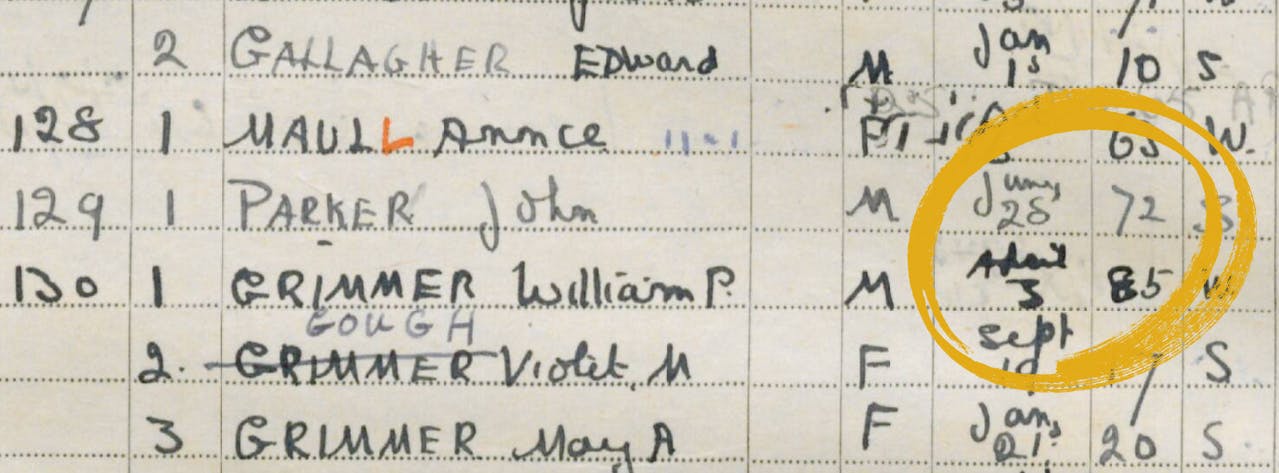 2 GALLAGHER EDward M Jan 1s 10 S
128 1 MAULL Annce 11-1 F 65 W.
129 1 PARKER John M June 28 72 S
130 1 GRIMMER William P. M April 3 85 W
GOUGH
2. GRIMMER Violet. M F Sept S
3 GRIMMER May A F Jan, 21 20 S